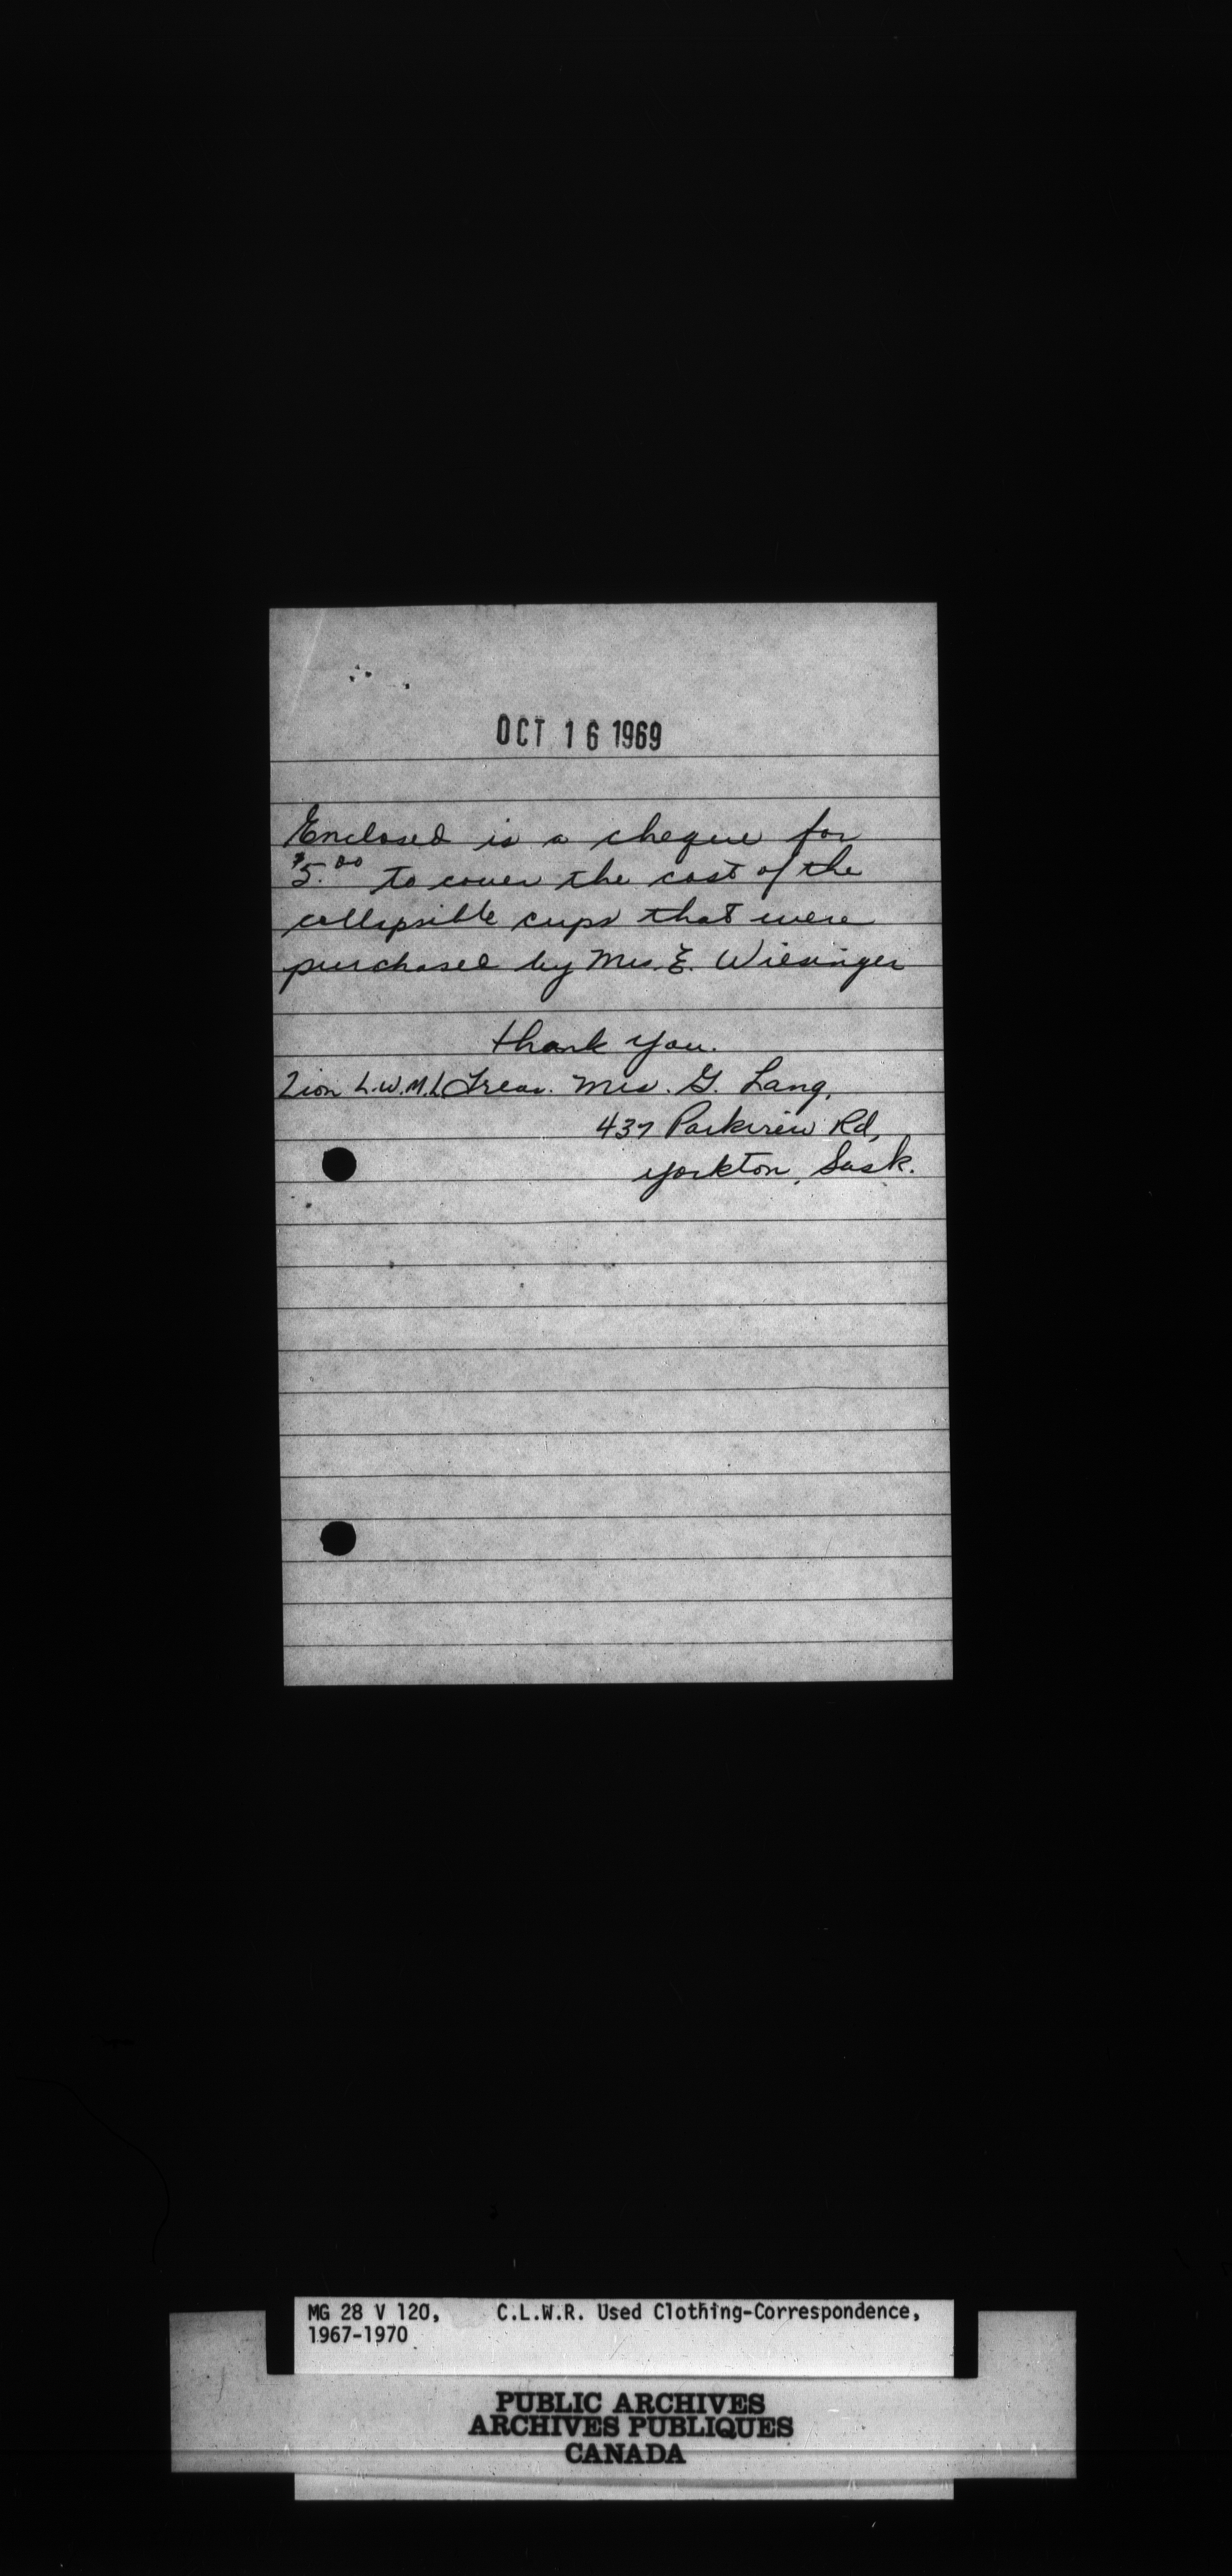 OCT 16 1969
Enclosed is a cheque for
$5.00 to cover the cost of the
collapsible cups that were
purchased by Mrs. E. Wiesinger
thank you.
Zion L.W.M.L. Treas. Mrs. G. Lang,
437 Parkview Rd,
Yorkton, Sask.
MG 28 V 120, C.L.W.R. Used Clothing-Correspondence,
1967-1970
PUBLIC ARCHIVES
ARCHIVES PUBLIQUES
CANADA